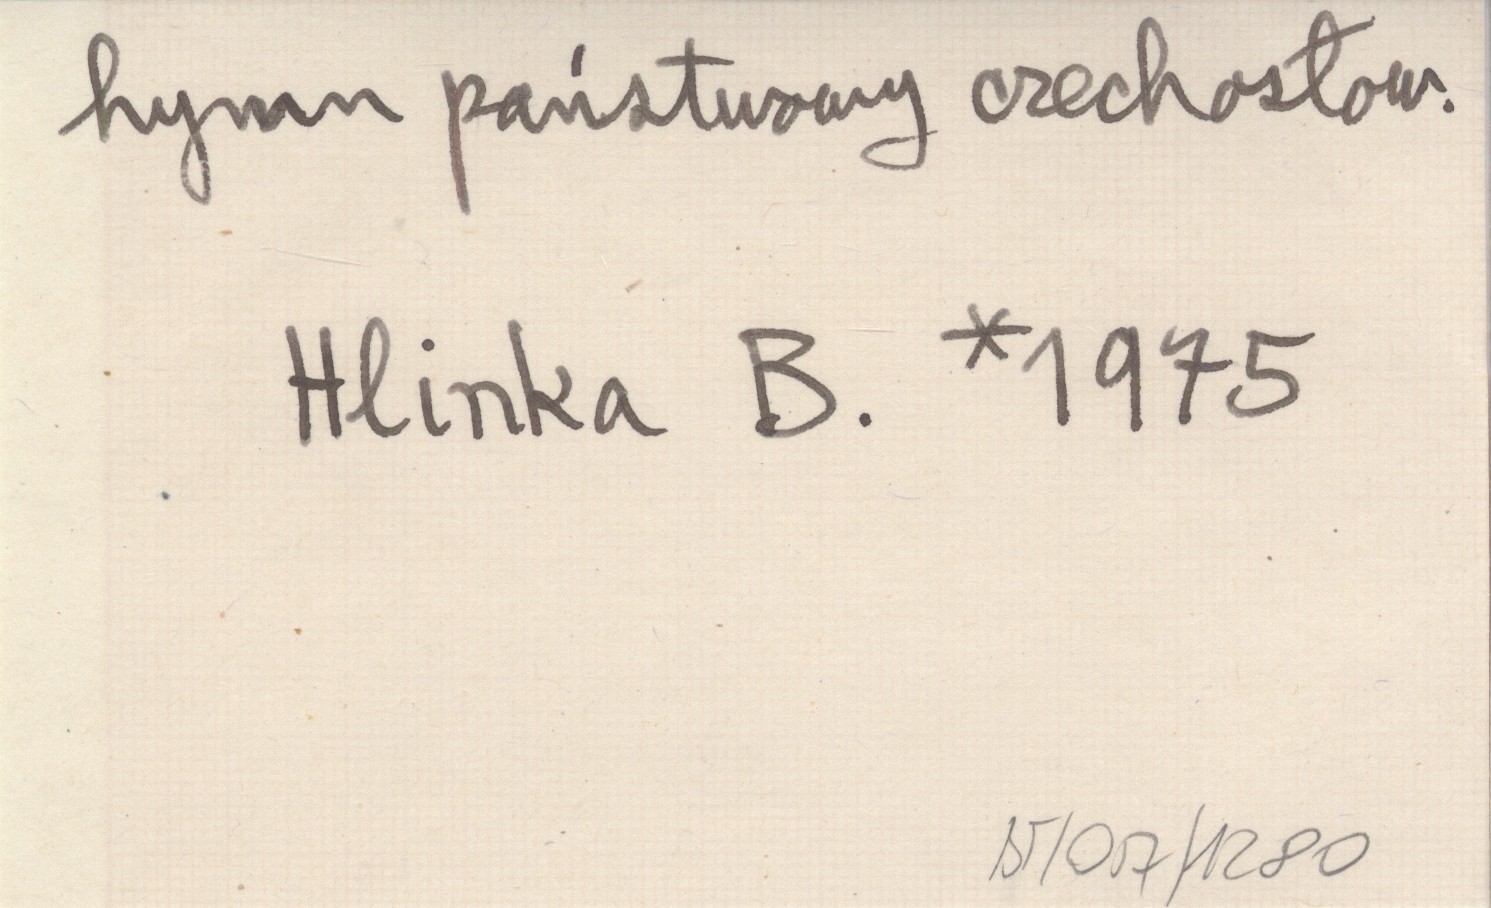 hymn państwowy czechosłow.
Hlinka B. *1975
15/07/1280